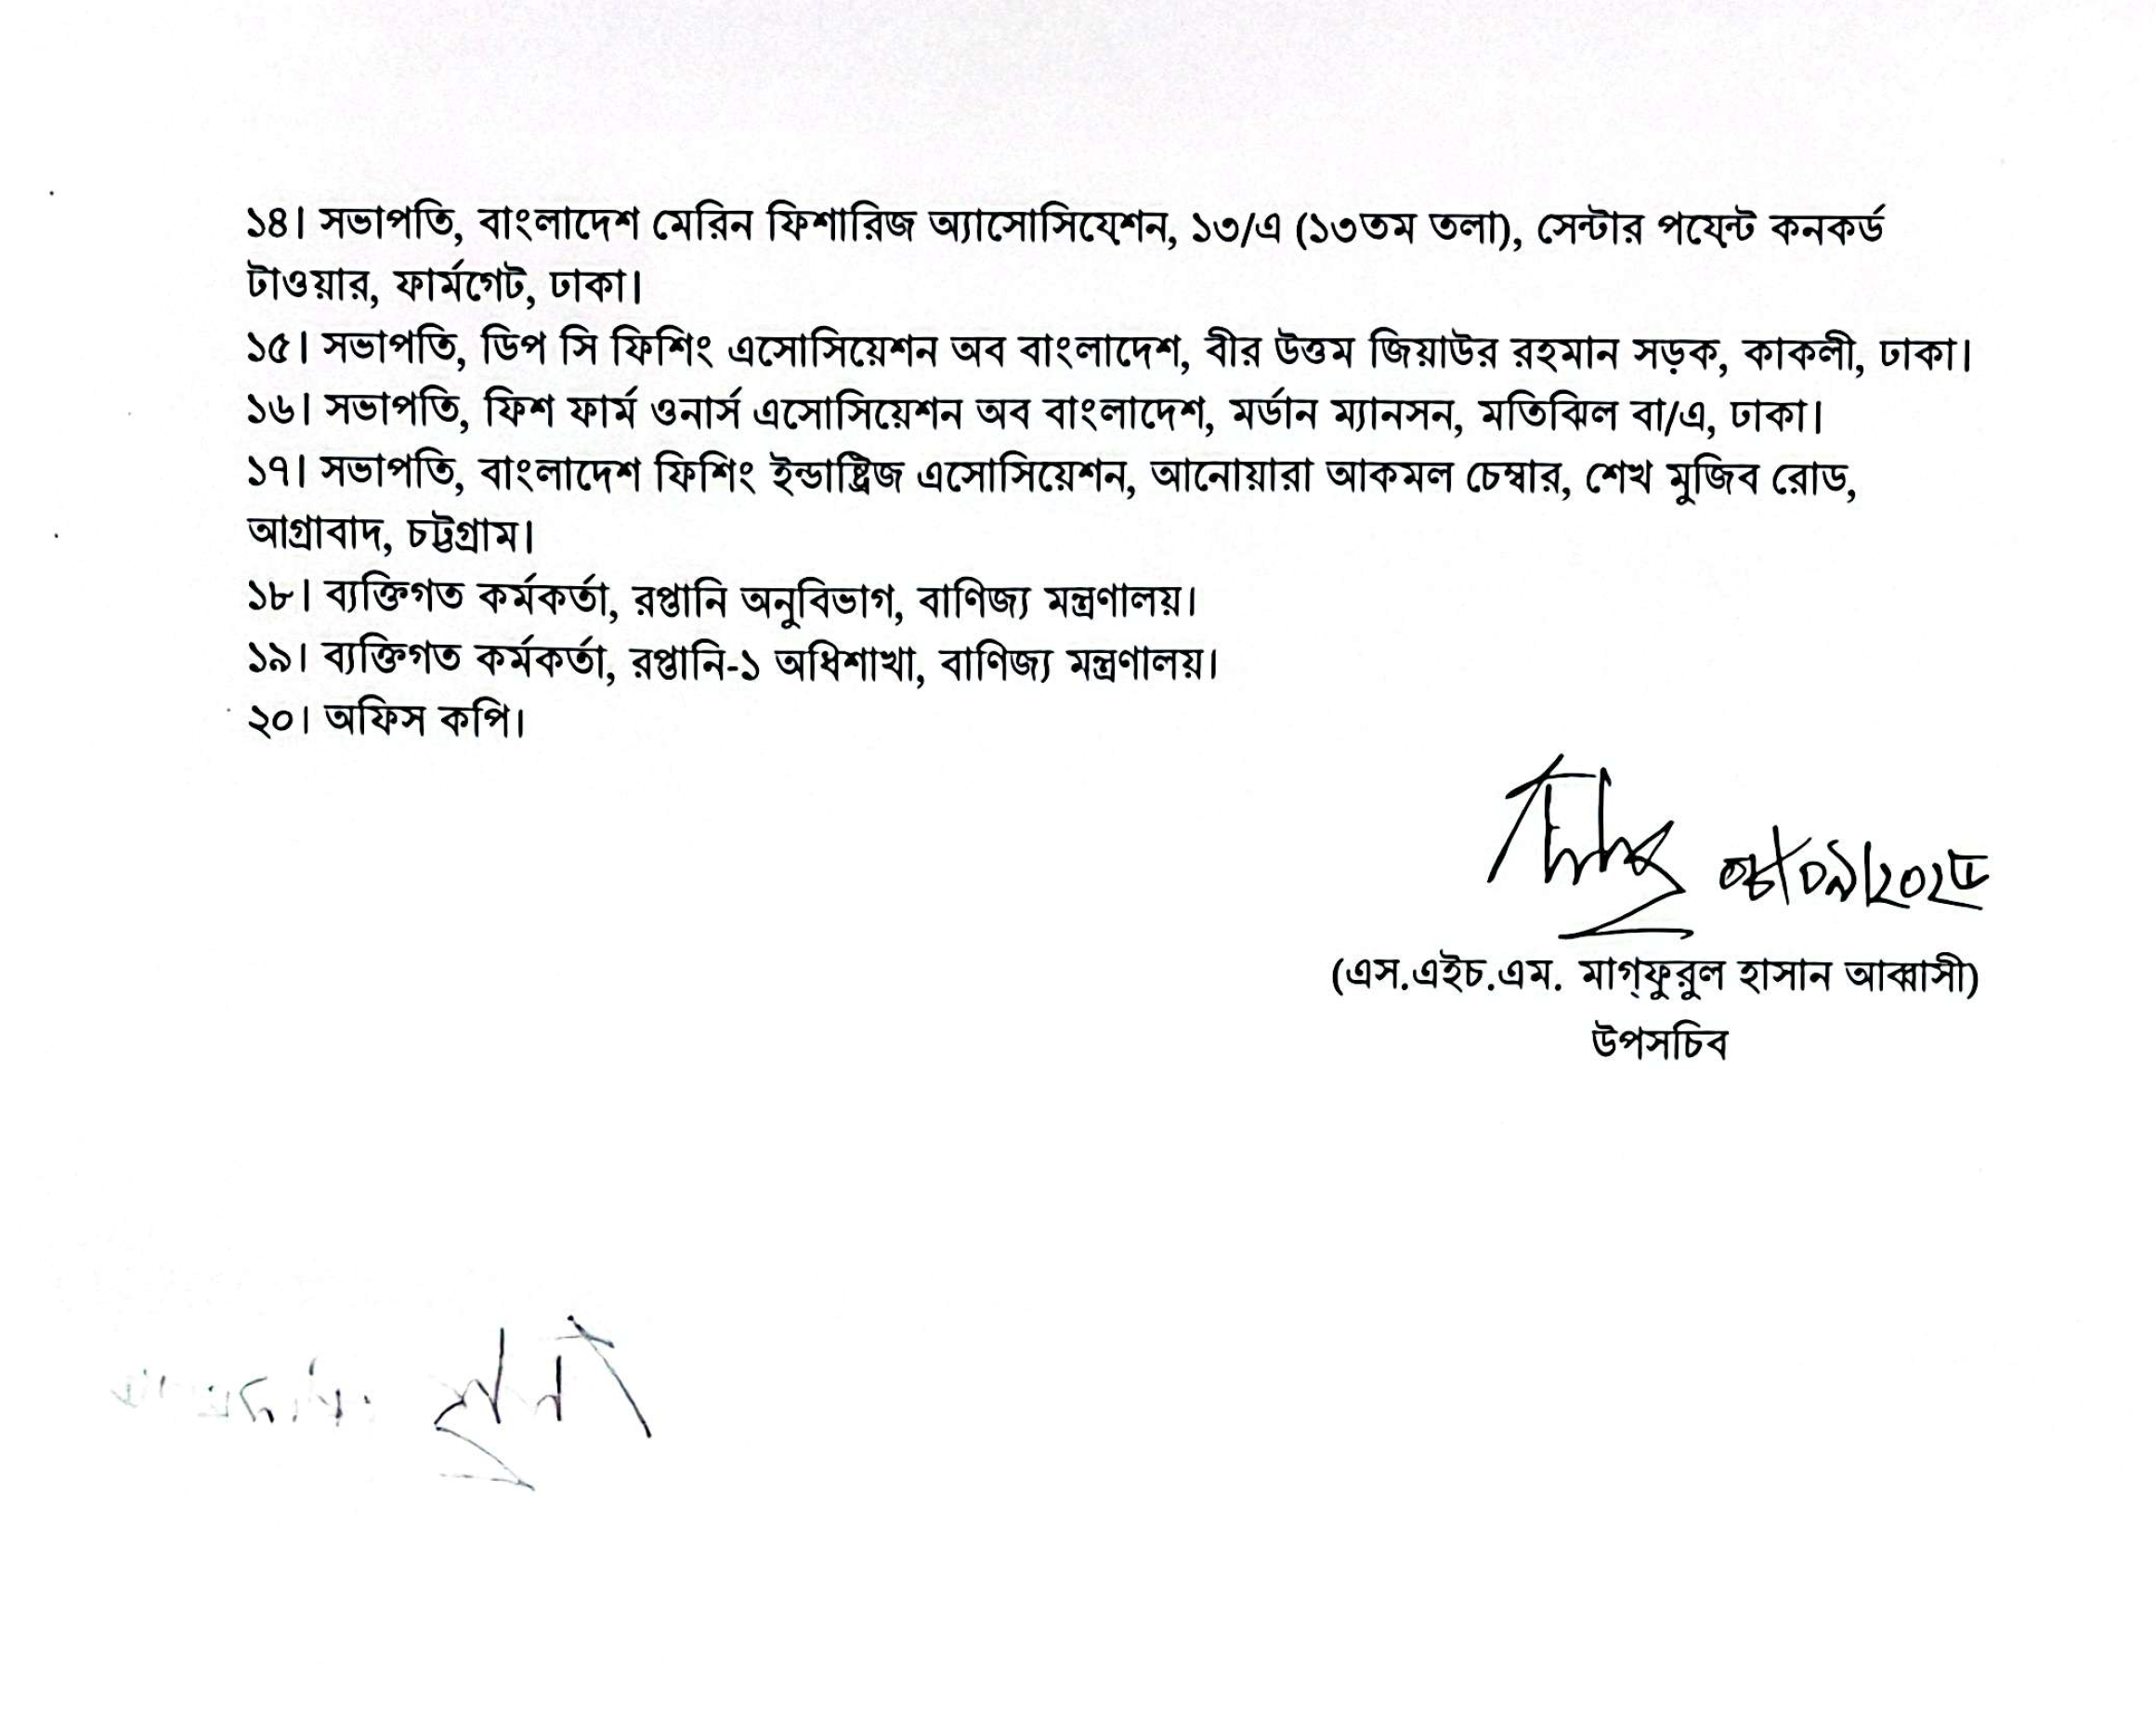 ১৪। সভাপতি, বাংলাদেশ মেরিন ফিশারিজ অ্যাসোসিযেশন, ১৩/এ (১৩তম তলা), সেন্টার পযেন্ট কনকর্ড
টাওয়ার, ফার্মগেট, ঢাকা।
১৫। সভাপতি, ডিপ সি ফিশিং এসোসিয়েশন অব বাংলাদেশ, বীর উত্তম জিয়াউর রহমান সড়ক, কাকলী, ঢাকা।
১৬। সভাপতি, ফিশ ফার্ম ওনার্স এসোসিয়েশন অব বাংলাদেশ, মর্ডান ম্যানসন, মতিঝিল বা/এ, ঢাকা।
১৭। সভাপতি, বাংলাদেশ ফিশিং ইন্ডাষ্ট্রিজ এসোসিয়েশন, আনোয়ারা আকমল চেম্বার, শেখ মুজিব রোড,
আগ্রাবাদ, চট্টগ্রাম।
১৮। ব্যক্তিগত কর্মকর্তা, রপ্তানি অনুবিভাগ, বাণিজ্য মন্ত্রণালয়।
১৯। ব্যক্তিগত কর্মকর্তা, রপ্তানি-১ অধিশাখা, বাণিজ্য মন্ত্রণালয়।
২০। অফিস কপি।
(এস.এইচ.এম. মাগ্‌ফুরুল হাসান আব্বাসী)
উপসচিব